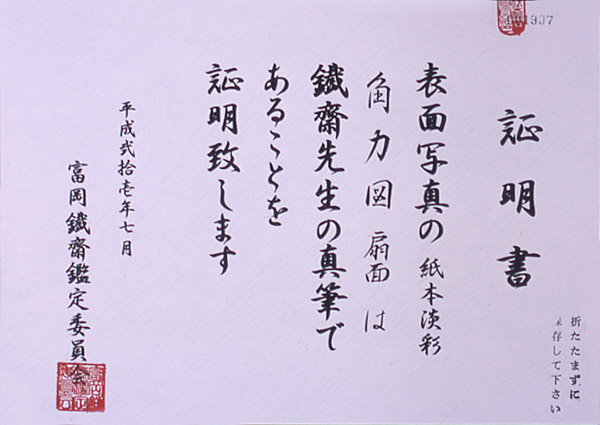 001997
証明書
表面写真の紙本淡彩
角力図扇面は
鐵齋先生の真筆で
あることを
証明致します
平成弐拾壱年七月
富岡鐵齋鑑定委員会
折たたまずに
保存して下さい